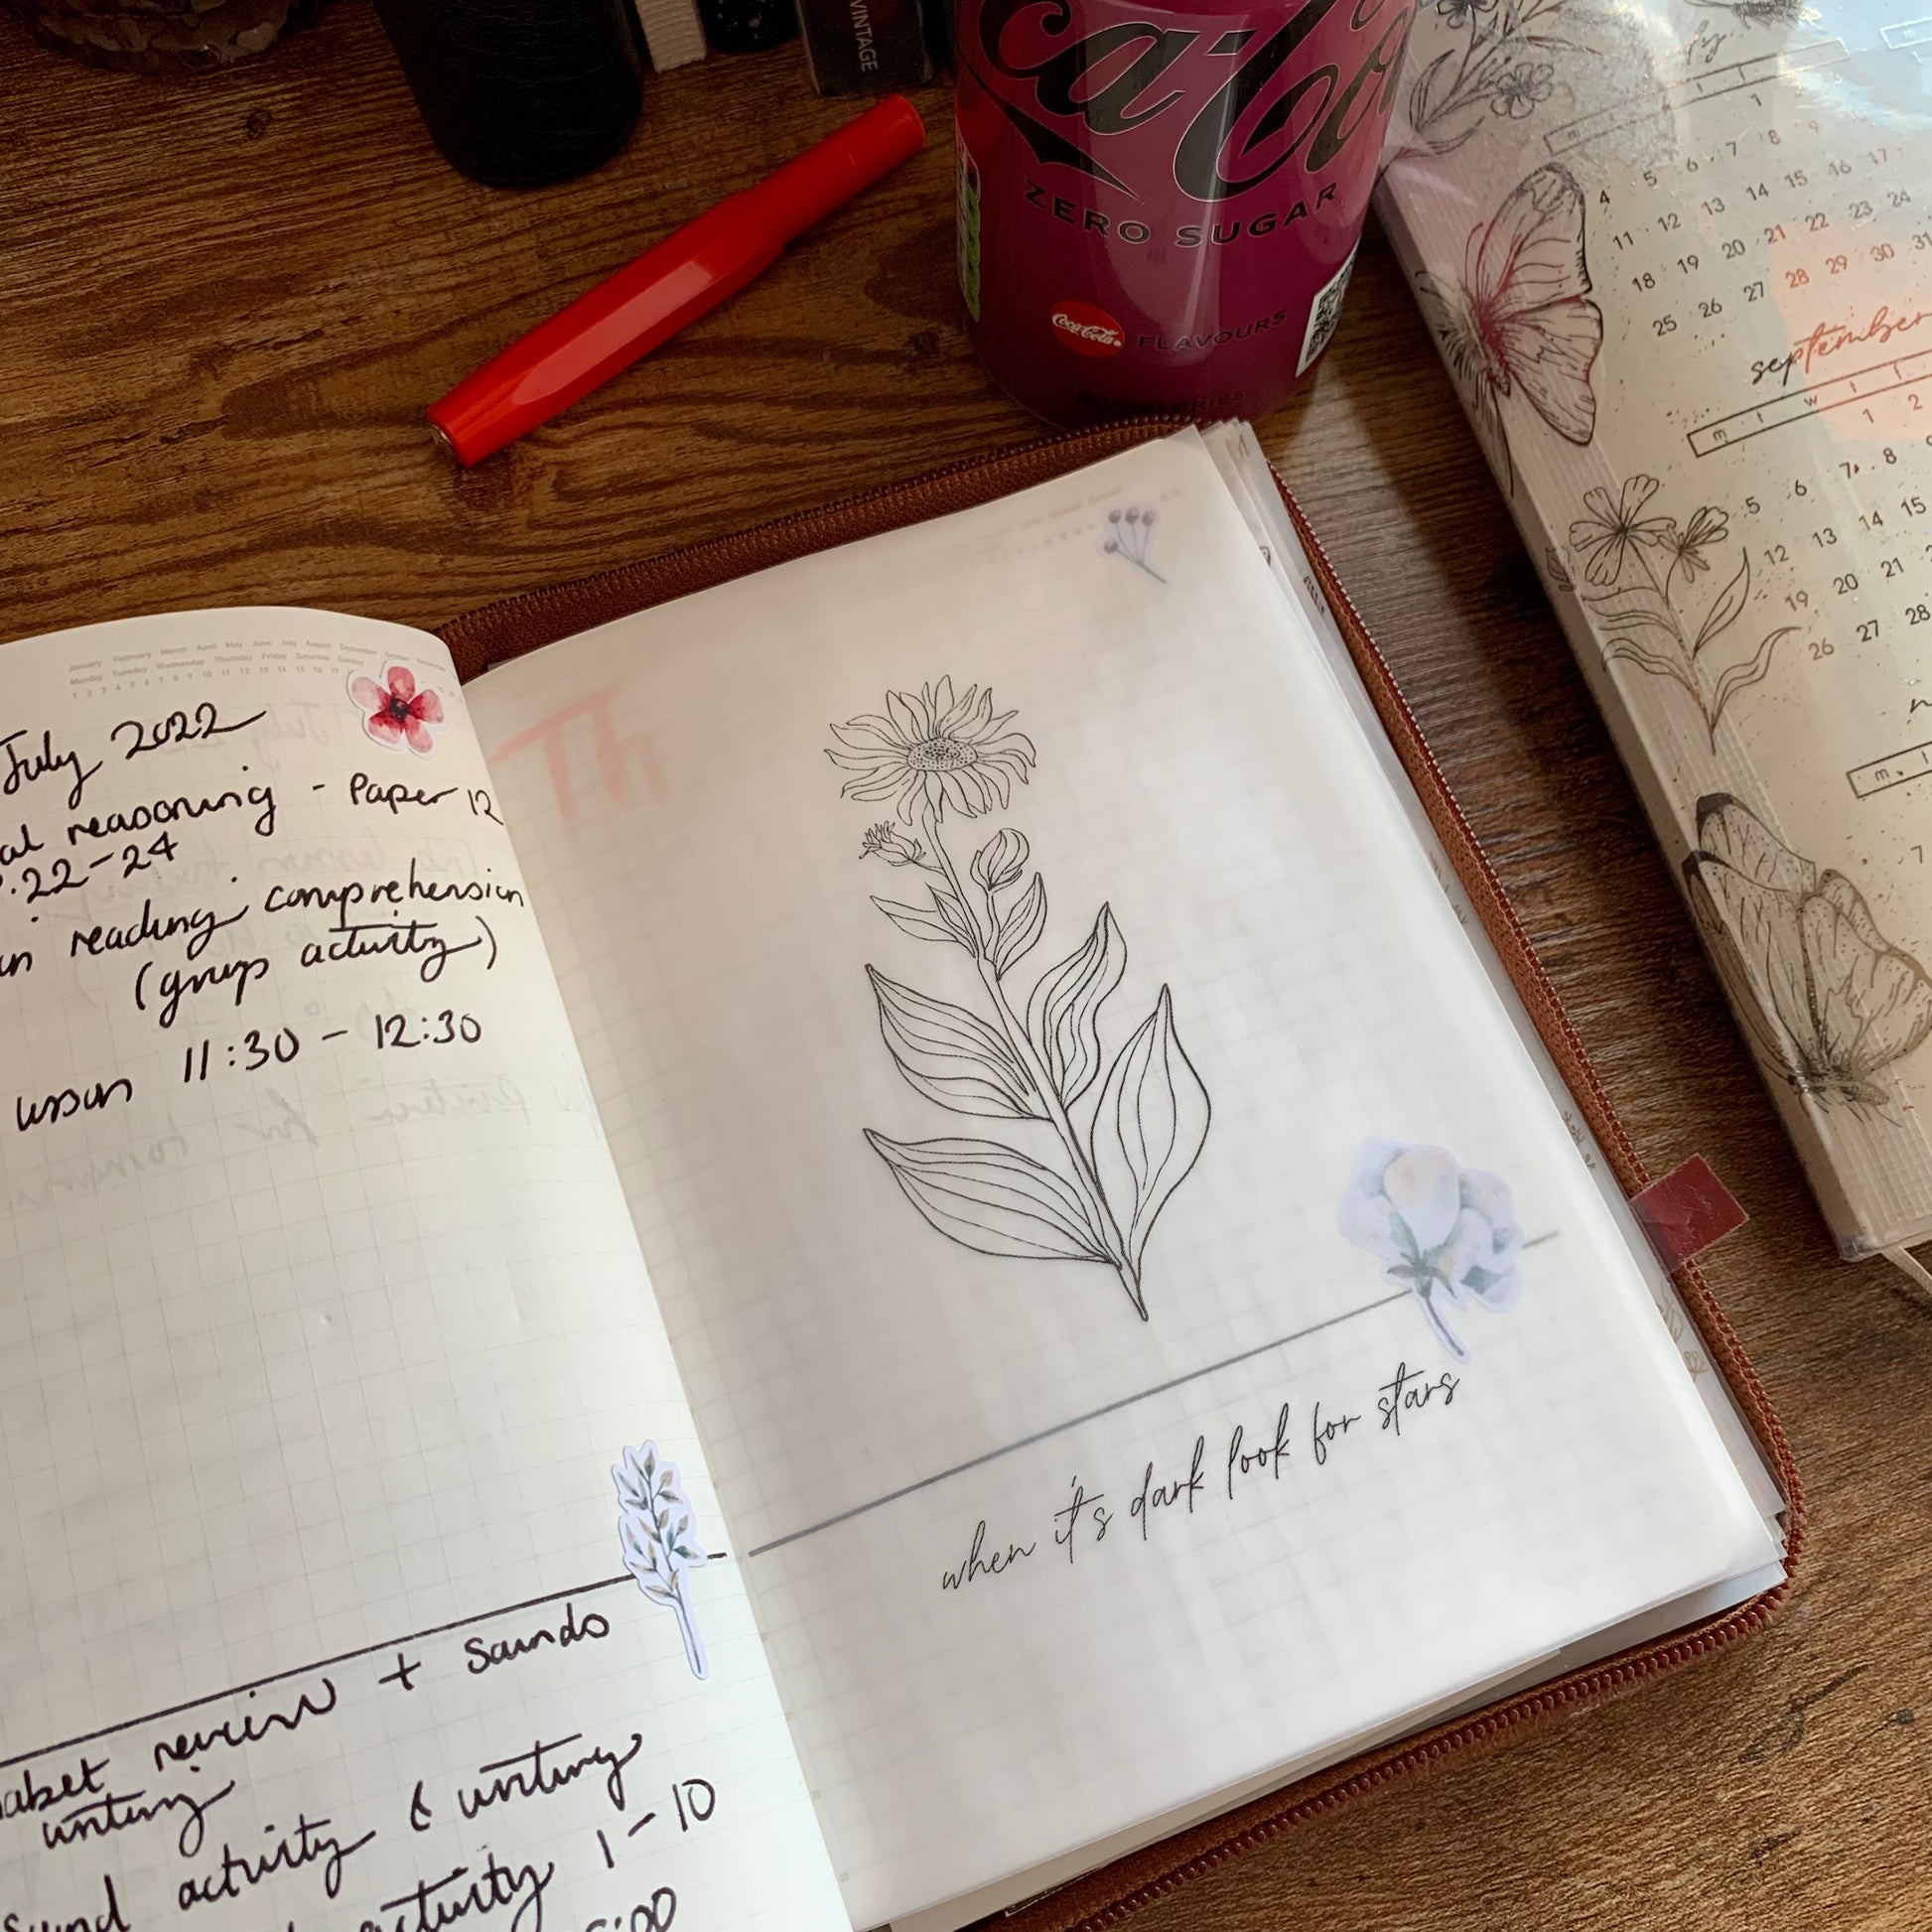 VINTAGE
ca Co
ZERO SUGAR
Coca-Cola
FLAVOURS
1
4 5 6 7 8 9
11 12 13 14 15 16 17
18 19 20 21 22 23 24
25 26 27 28 29 30 31
september
m t w t
1 2
5 6 7 8
12 13 14 15
19 20 21
26 27 28
m
7
January February March April May June July August September October November
Monday Tuesday Wednesday Thursday Friday Saturday Sunday
1 2 3 4 5 6 7 8 9 10 11 12 13 14 15 16 17
July 2022
al reasoning - Paper 12
22-24
reading comprehension
(group activity)
lesson 11:30 - 12:30
Th
when it's dark look for stars
abet review + sounds
writing
sound activity & writing
activity 1-10
:00